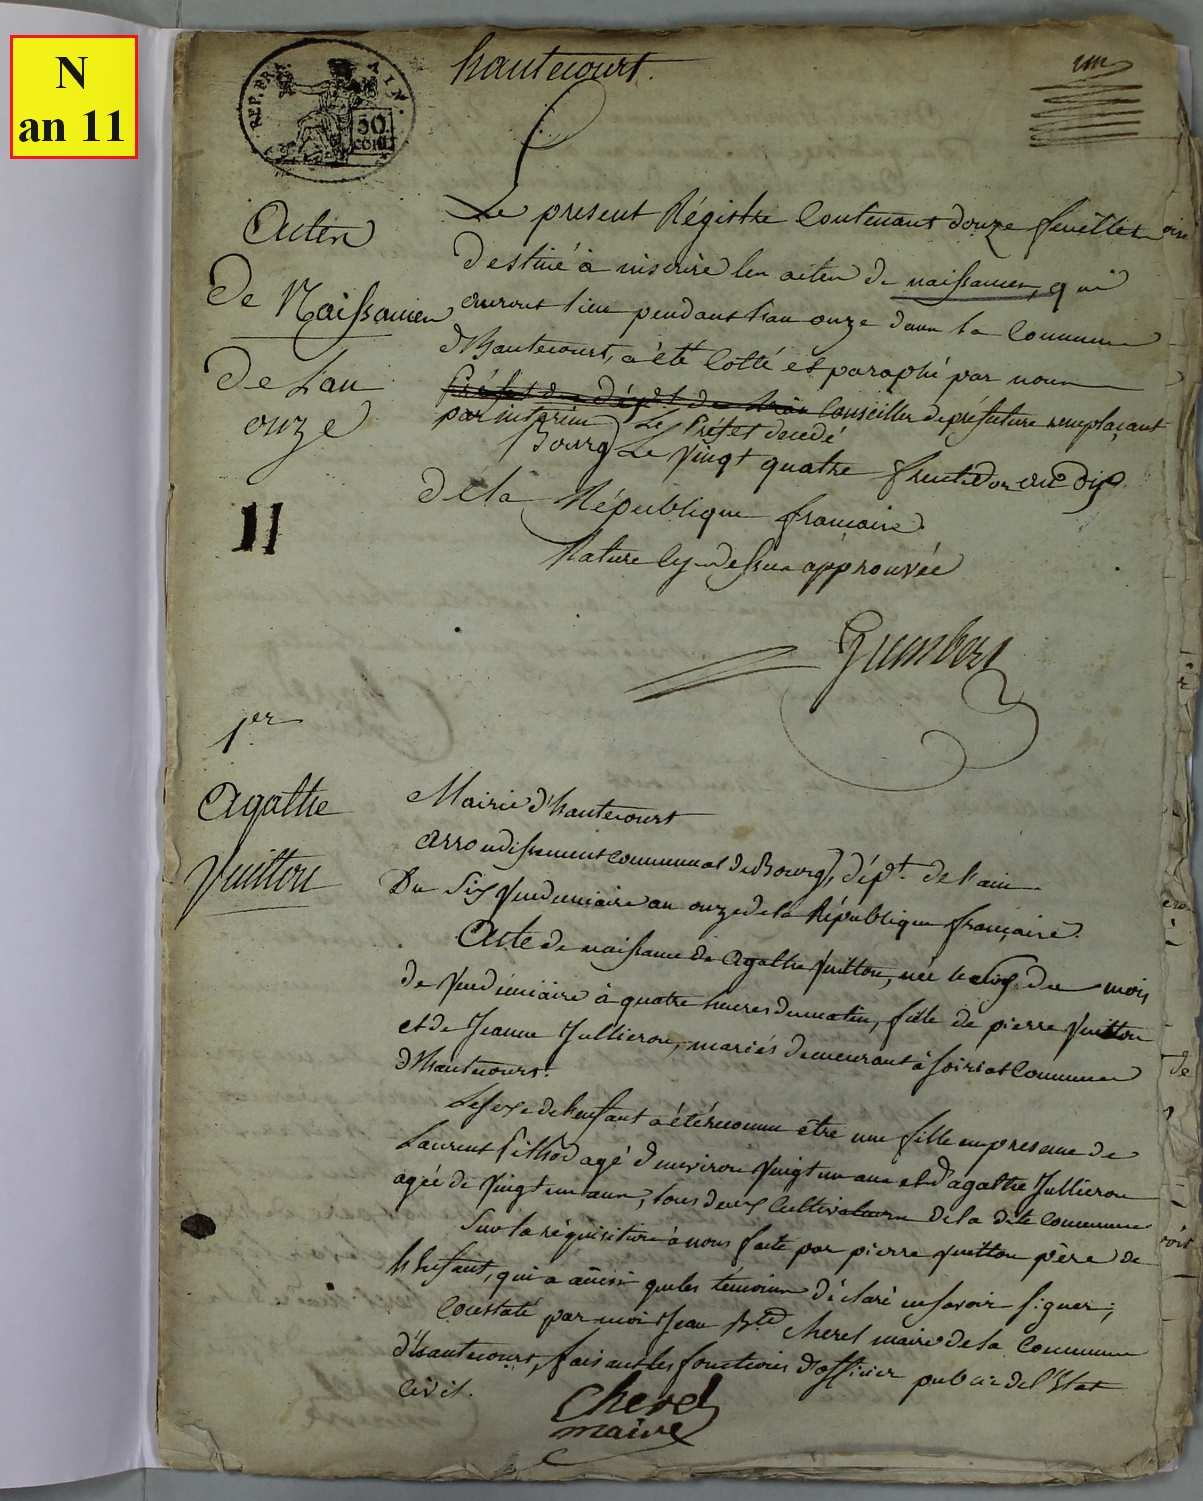 N
an 11
REP. FRA. AIN.
50
CENT.
hautecourt.
un
Actes
De Naissances
De L'an
onze
11
Le présent Régistre Contenant douze feuilles
destiné à inscrire les actes de naissances, qui
auront lieu pendant l'an onze dans la Commune
d'hautecourt, a été Cotté et paraphé par nous
Préfet du Dépt de l'Ain Conseiller de préfecture remplaçant
par interim Le Préfet decedé
Bourg Le Vingt quatre fructidor an dix
de la République française.
Rature Cy-dessus approuvée
1er
Agathe
Vuitton
Mairie d'hautecourt
Arrondissement Communal de Bourg, dépt. de l'ain
Du Six Vendemiaire an onze de la République française.
Acte de naissance de Agathe Vuitton, née le six du mois
de Vendémiaire à quatre heures du matin, fille de pierre Vuitton
et de Jeanne Jullieron, mariés demeurant à soiriat Commune
d'hautecourt.
Le sexe de l'enfant a été reconnu être une fille en presence de
Laurent Pithod agé d'environ Vingt un ans et d'agathe Jullieron
agée de Vingt un ans, tous deux Cultivateurs de la dite Commune
Sur la réquisition à nous faite par pierre Vuitton père de
l'Enfant, qui a ainsi que les témoins déclaré ne savoir signer;
Constaté par moi Jean Bte Cherel maire de la Commune
d'hautecourt, faisant les fonctions d'officier public de l'Etat
Civil.
Cherel
maire